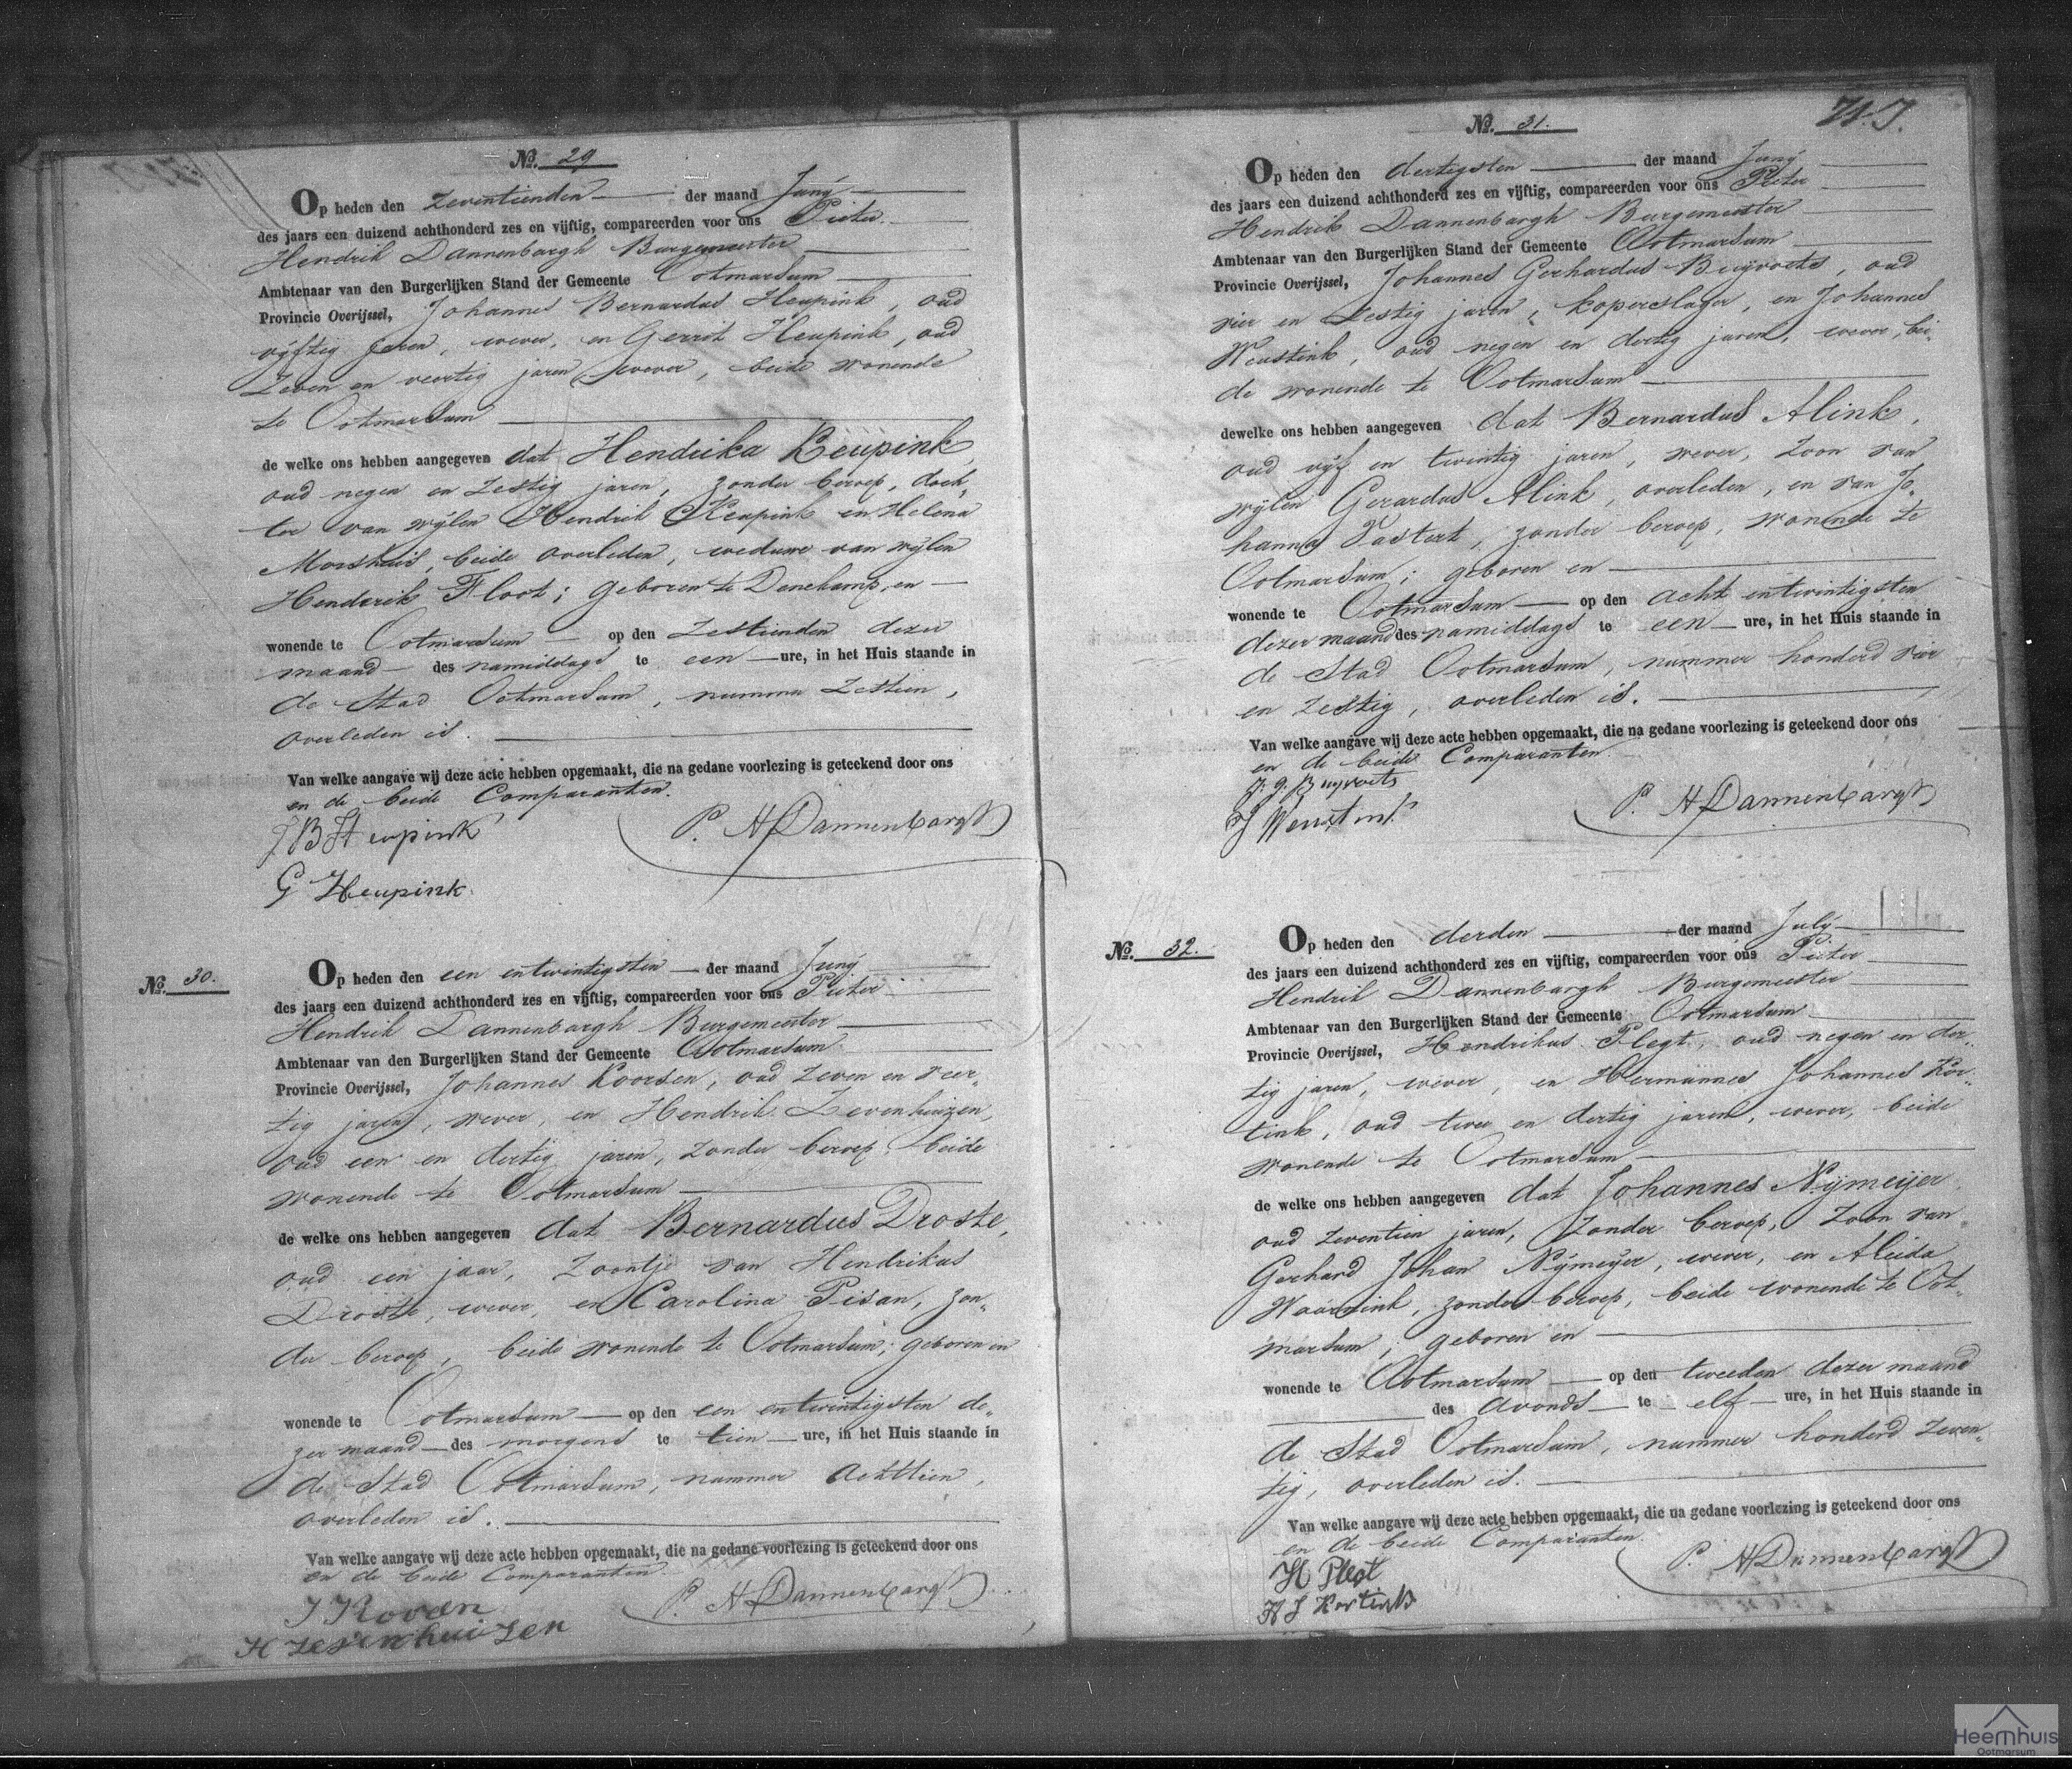 No. 29
Op heden den zeventienden der maand Junij
des jaars een duizend achthonderd zes en vijftig, compareerden voor ons Pieter
Hendrik Dannenbargh Burgemeester
Ambtenaar van den Burgerlijken Stand der Gemeente Ootmarsum
Provincie Overijssel, Johannes Bernardus Heupink, oud
vijftig jaren, wever, en Gerrit Heupink, oud
zeven en veertig jaren wever, beide wonende
te Ootmarsum
de welke ons hebben aangegeven dat Hendrika Keupink,
oud negen en zestig jaren, zonder beroep, doch-
ter van wijlen Hendrik Keupink en Helena
Morshuis, beide overleden, weduwe van wijlen
Henderik Floot; geboren te Denekamp, en
wonende te Ootmarsum op den zestienden dezer
maand des namiddags te een ure, in het Huis staande in
de Stad Ootmarsum, nummer zestien,
overleden is.
Van welke aangave wij deze acte hebben opgemaakt, die na gedane voorlezing is geteekend door ons
en de beide Comparanten.
J B Heupink
P. H Dannenbargh
G Heupink
No. 30.
Op heden den een entwintigsten der maand Junij
des jaars een duizend achthonderd zes en vijftig, compareerden voor ons Pieter
Hendrik Dannenbargh Burgemeester
Ambtenaar van den Burgerlijken Stand der Gemeente Ootmarsum
Provincie Overijssel, Johannes Koorsen, oud zeven en veer-
tig jaren, wever, en Hendrik Zevenhuizen,
oud een en dertig jaren, zonder beroep, beide
wonende te Ootmarsum
de welke ons hebben aangegeven dat Bernardus Droste,
oud een jaar, zoontje van Hendrikus
Droste, wever, en Carolina Pisan, zon-
der beroep, beide wonende te Ootmarsum; geboren en
wonende te Ootmarsum op den een entwintigsten de-
zer maand des morgens te tien ure, in het Huis staande in
de Stad Ootmarsum, nummer achttien,
overleden is.
Van welke aangave wij deze acte hebben opgemaakt, die na gedane voorlezing is geteekend door ons
en de beide Comparanten
P. H Dannenbargh
H Zevenhuizen
No. 31.
Op heden den dertigsten der maand Junij
des jaars een duizend achthonderd zes en vijftig, compareerden voor ons Pieter
Hendrik Dannenbargh Burgemeester
Ambtenaar van den Burgerlijken Stand der Gemeente Ootmarsum
Provincie Overijssel, Johannes Gerhardus Buijvoets, oud
vier en zestig jaren, koperslager, en Johannes
Weustink, oud negen en dertig jaren, wever, bei-
de wonende te Ootmarsum
dewelke ons hebben aangegeven dat Bernardus Alink,
oud vijf en twintig jaren, wever, zoon van
wijlen Gerardus Alink, overleden, en van Jo-
hanna Pastert, zonder beroep, wonende te
Ootmarsum; geboren en
wonende te Ootmarsum op den acht entwintigsten
dezer maand des namiddags te een ure, in het Huis staande in
de Stad Ootmarsum, nummer honderd vier
en zestig, overleden is.
Van welke aangave wij deze acte hebben opgemaakt, die na gedane voorlezing is geteekend door ons
en de beide Comparanten
J. G. Buyvoets
P. H Dannenbargh
J Weustink
No. 32.
Op heden den derden der maand Julij
des jaars een duizend achthonderd zes en vijftig, compareerden voor ons Pieter
Hendrik Dannenbargh Burgemeester
Ambtenaar van den Burgerlijken Stand der Gemeente Ootmarsum
Provincie Overijssel, Hendrikus Plegt, oud negen en der-
tig jaren, wever, en Hermannes Johannes Kor-
tink, oud twee en dertig jaren, wever, beide
wonende te Ootmarsum
de welke ons hebben aangegeven dat Johannes Nijmeijer
oud zeventien jaren, zonder beroep, zoon van
Gerhard Johan Nijmeijer, wever, en Aleida
Waarnink, zonder beroep, beide wonende te Oot-
marsum; geboren en
wonende te Ootmarsum op den tweeden dezer maand
des avonds te elf ure, in het Huis staande in
de Stad Ootmarsum, nummer honderd zeven-
tig, overleden is.
Van welke aangave wij deze acte hebben opgemaakt, die na gedane voorlezing is geteekend door ons
en de beide Comparanten.
H Plegt
P. H Dannenbargh
H J Kortink
Heemhuis
Ootmarsum